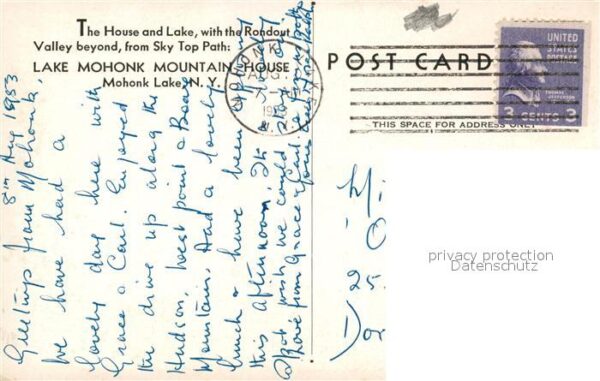 The House and Lake, with the Rondout
Valley beyond, from Sky Top Path:
LAKE MOHONK MOUNTAIN HOUSE
Mohonk Lake, N. Y.
POST CARD
THIS SPACE FOR ADDRESS ONLY
UNITED
STATES
POSTAGE
THOMAS
JEFFERSON
3 CENTS 3
MOHONK LAKE
AUG
N.Y.
8th Aug 1953
Greetings from Mohonk,
We have had a
lovely day here with
Grace & Carl. Enjoyed
the drive up along the
Hudson, West point & Bear
Mountain. Had a lovely
lunch & have been
this afternoon.
wish we could
Love from Grace & Carl
Mi
O
25.
Dor
privacy protection
Datenschutz